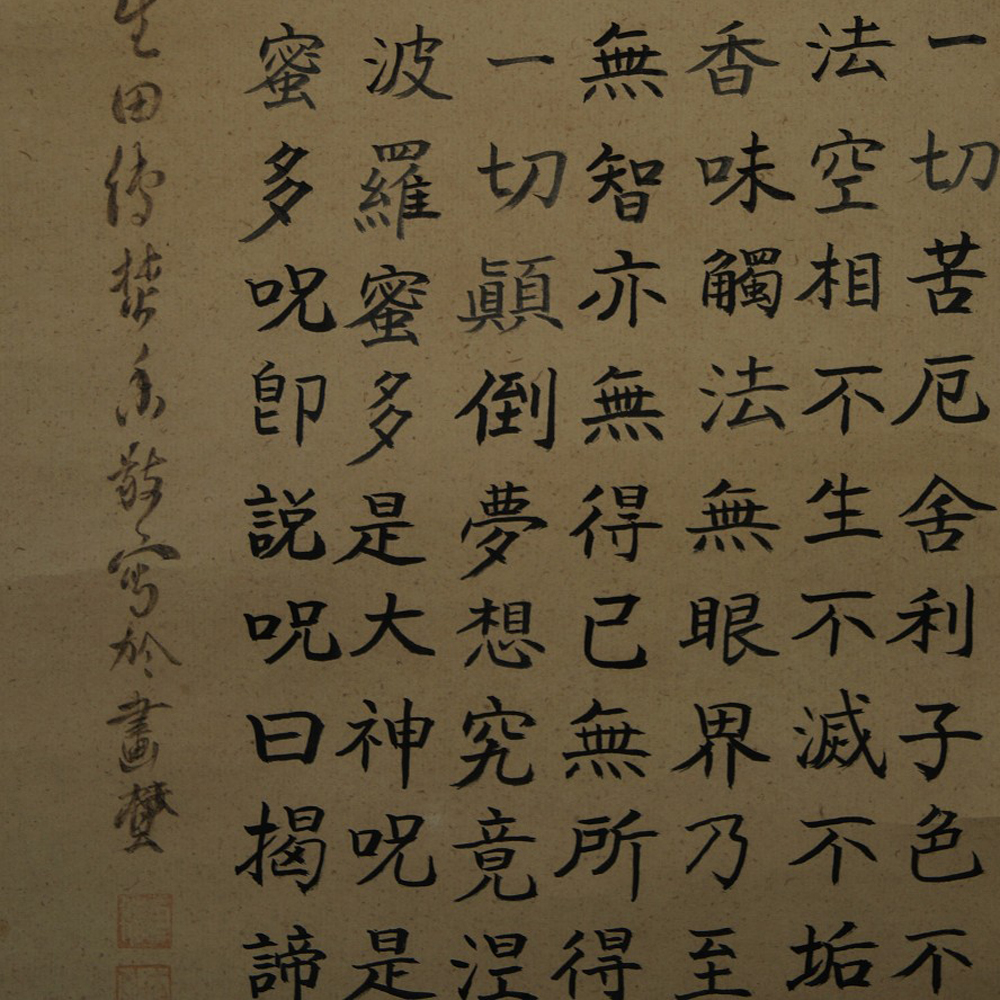 一切苦厄舍利子色不
法空相不生不滅不垢
香味觸法無眼界乃至
無智亦無得已無所得
一切顚倒夢想究竟涅
波羅蜜多是大神呪是
蜜多呪卽説呪曰揭諦
生田傳焚香敬寫於畫